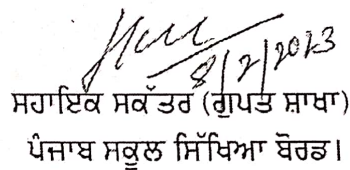 8/2/2023
ਸਹਾਇਕ ਸਕੱਤਰ (ਗੁਪਤ ਸ਼ਾਖਾ)
ਪੰਜਾਬ ਸਕੂਲ ਸਿੱਖਿਆ ਬੋਰਡ।